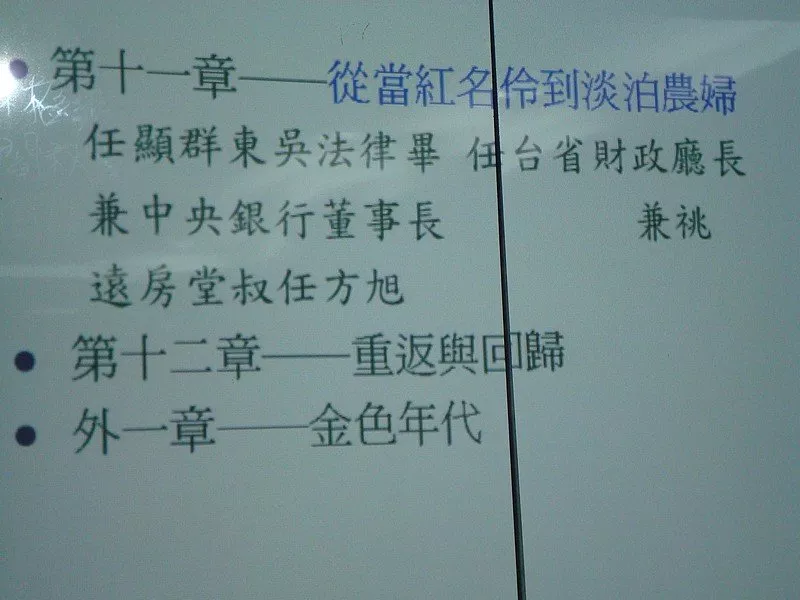 • 第十一章——從當紅名伶到淡泊農婦
任顯群東吳法律畢 任台省財政廳長
兼中央銀行董事長 兼祧
遠房堂叔任方旭
• 第十二章——重返與回歸
• 外一章——金色年代